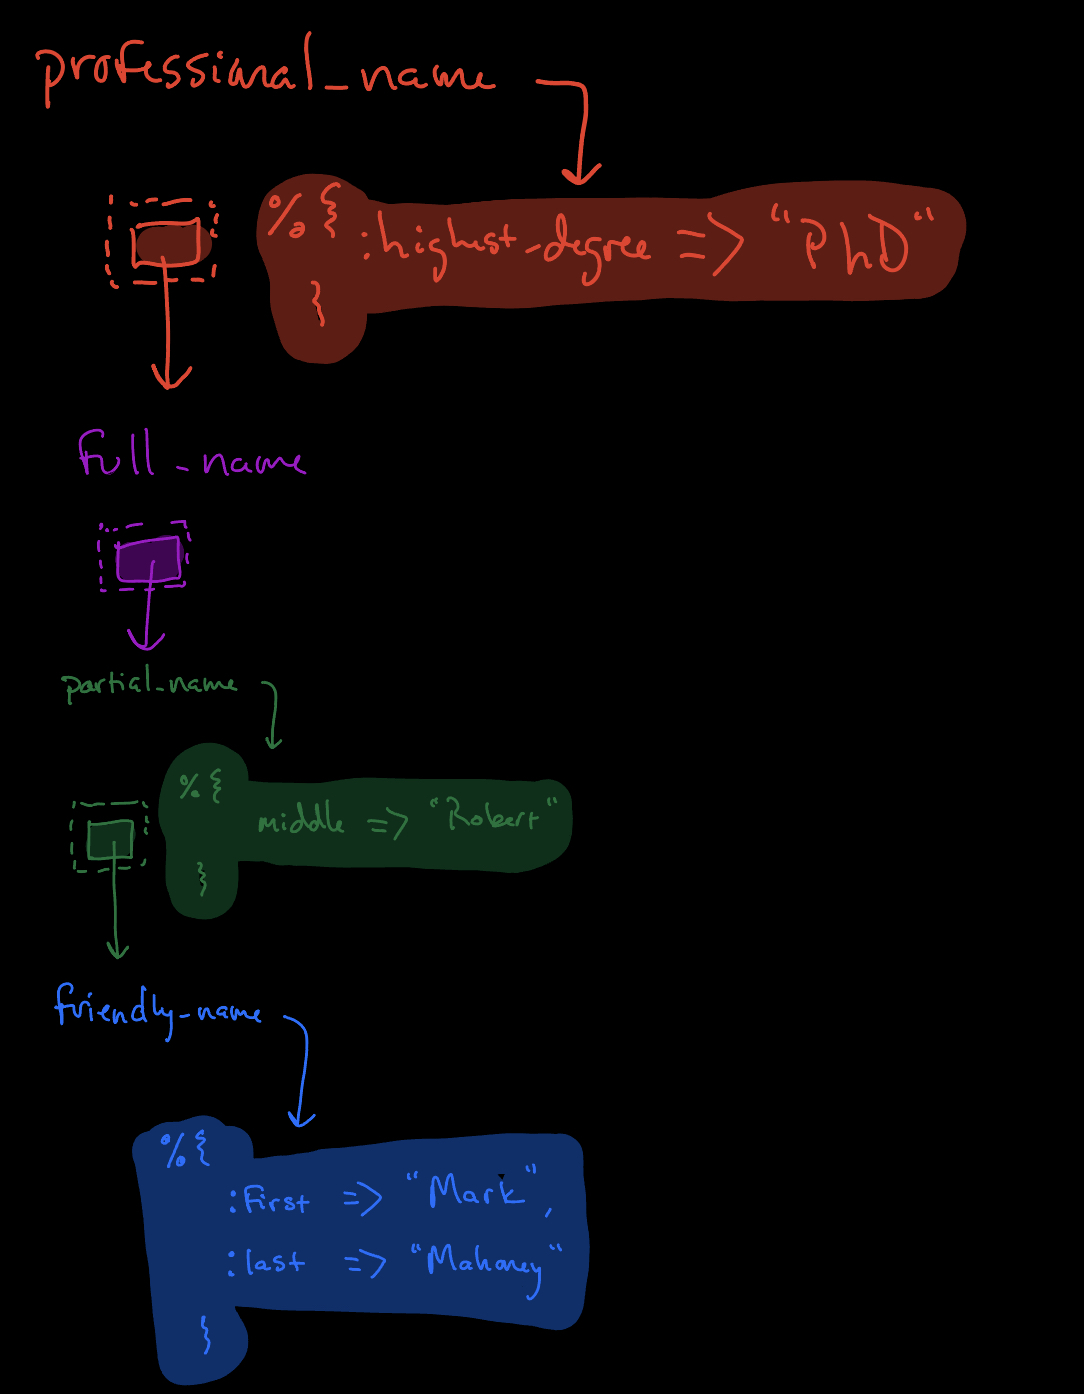 professional_name
%{
:highest_degree => "PhD"
}
full_name
partial_name
%{
middle => "Robert"
}
friendly_name
%{
:first => "Mark",
:last => "Mahoney"
}